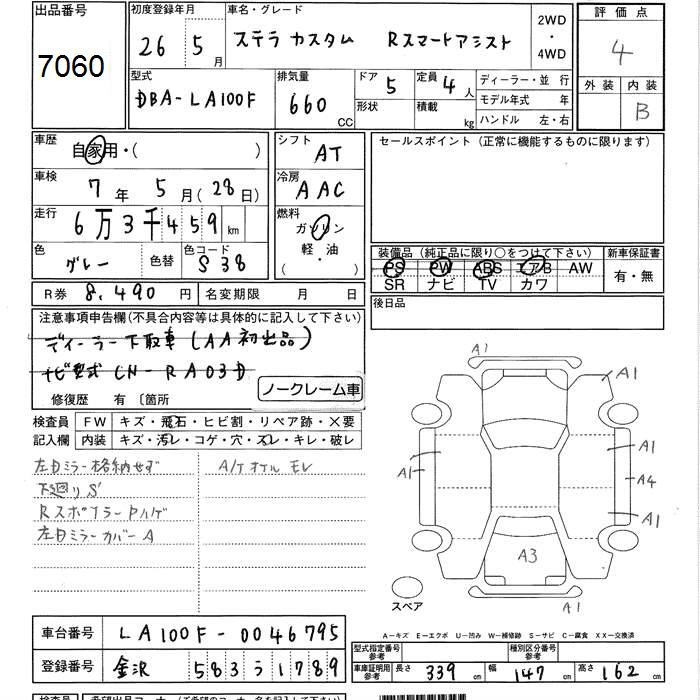 出品番号 初度登録年月 車名・グレード 2WD・4WD 評価点
7060 26 5月 ステラ カスタム Rスマートアシスト 4
型式 排気量 ドア 5 定員 4人 ディーラー・並行 外装 内装
DBA-LA100F 660CC 形状 積載 kg モデル年式 年 B
ハンドル 左・右
車歴 自家用・( ) シフト AT セールスポイント (正常に機能するものに限ります)
車検 7年 5月(28日) 冷房 AAC
走行 6万3千459km 燃料 ガソリン
軽・油
( ・ )
色 グレー 色替 色コード S38 装備品 (純正品に限り○をつけて下さい) 新車保証書
PS PW ABS エアB AW 有・無
SR ナビ TV カワ
R券 8,490円 名変期限 月 日 後日品
注意事項申告欄(不具合内容等は具体的に記入して下さい)
ディーラー下取車(AA初出品)
ナビ型式 CN-RA03D
ノークレーム車
修復歴 有 〔箇所
検査員 FW キズ・飛石・ヒビ割・リペア跡・X要
記入欄 内装 キズ・汚レ・コゲ・穴・スレ・キレ・破レ
左ドミラー格納せず A/Tオイルモレ
下廻りS'
RスポイラーPハゲ
左ドミラーカバーA
A1
A1
A1
A1
A4
A1
A3
A1
スペア
A-キズ E-エクボ U-凹み W-補修跡 S-サビ C-腐食 XX-交換済
車台番号 LA100F-0046795
型式指定番号 参考 種別区分番号 参考
登録番号 金沢 583 う 1789
車庫証明用 参考 長さ 339cm 幅 147cm 高さ 162cm